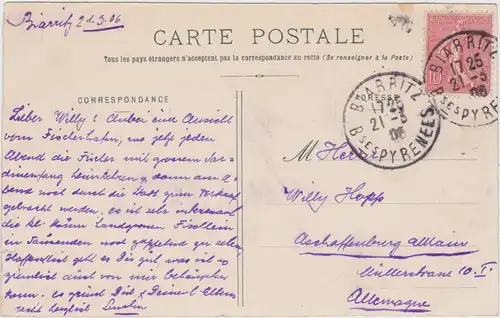 Biarritz 21.3.06
CARTE POSTALE
Tous les pays étrangers n'acceptent pas la correspondance au recto (Se renseigner à la Poste)
CORRESPONDANCE
ADRESSE
Lieber Willy! Anbei eine Ansicht
vom Fischerhafen, wo jetzt jeden
Abend die Fischer mit grossem Sar-
dinenfang heimkehren & dann am A-
bend noch durch die Stadt zum Verkauf
gebracht werden, es ist sehr interessant
die kl.
in Tausenden noch zappelnd zu sehen.
Hoffentlich geht es Dir gut, was ich es
ziemlich auch von mir behaupten
kann. es grüsst Dich & Deine l. Eltern
recht herzlich
M Herrn
Willy Hopp
Aschaffenburg a/Main
Müllerstrasse 10. I
Allemagne
BIARRITZ
17 25
21 -3
06
BSES PYRENEES
BIARRITZ
25
21 -3
06
BSES PYRENEES
10